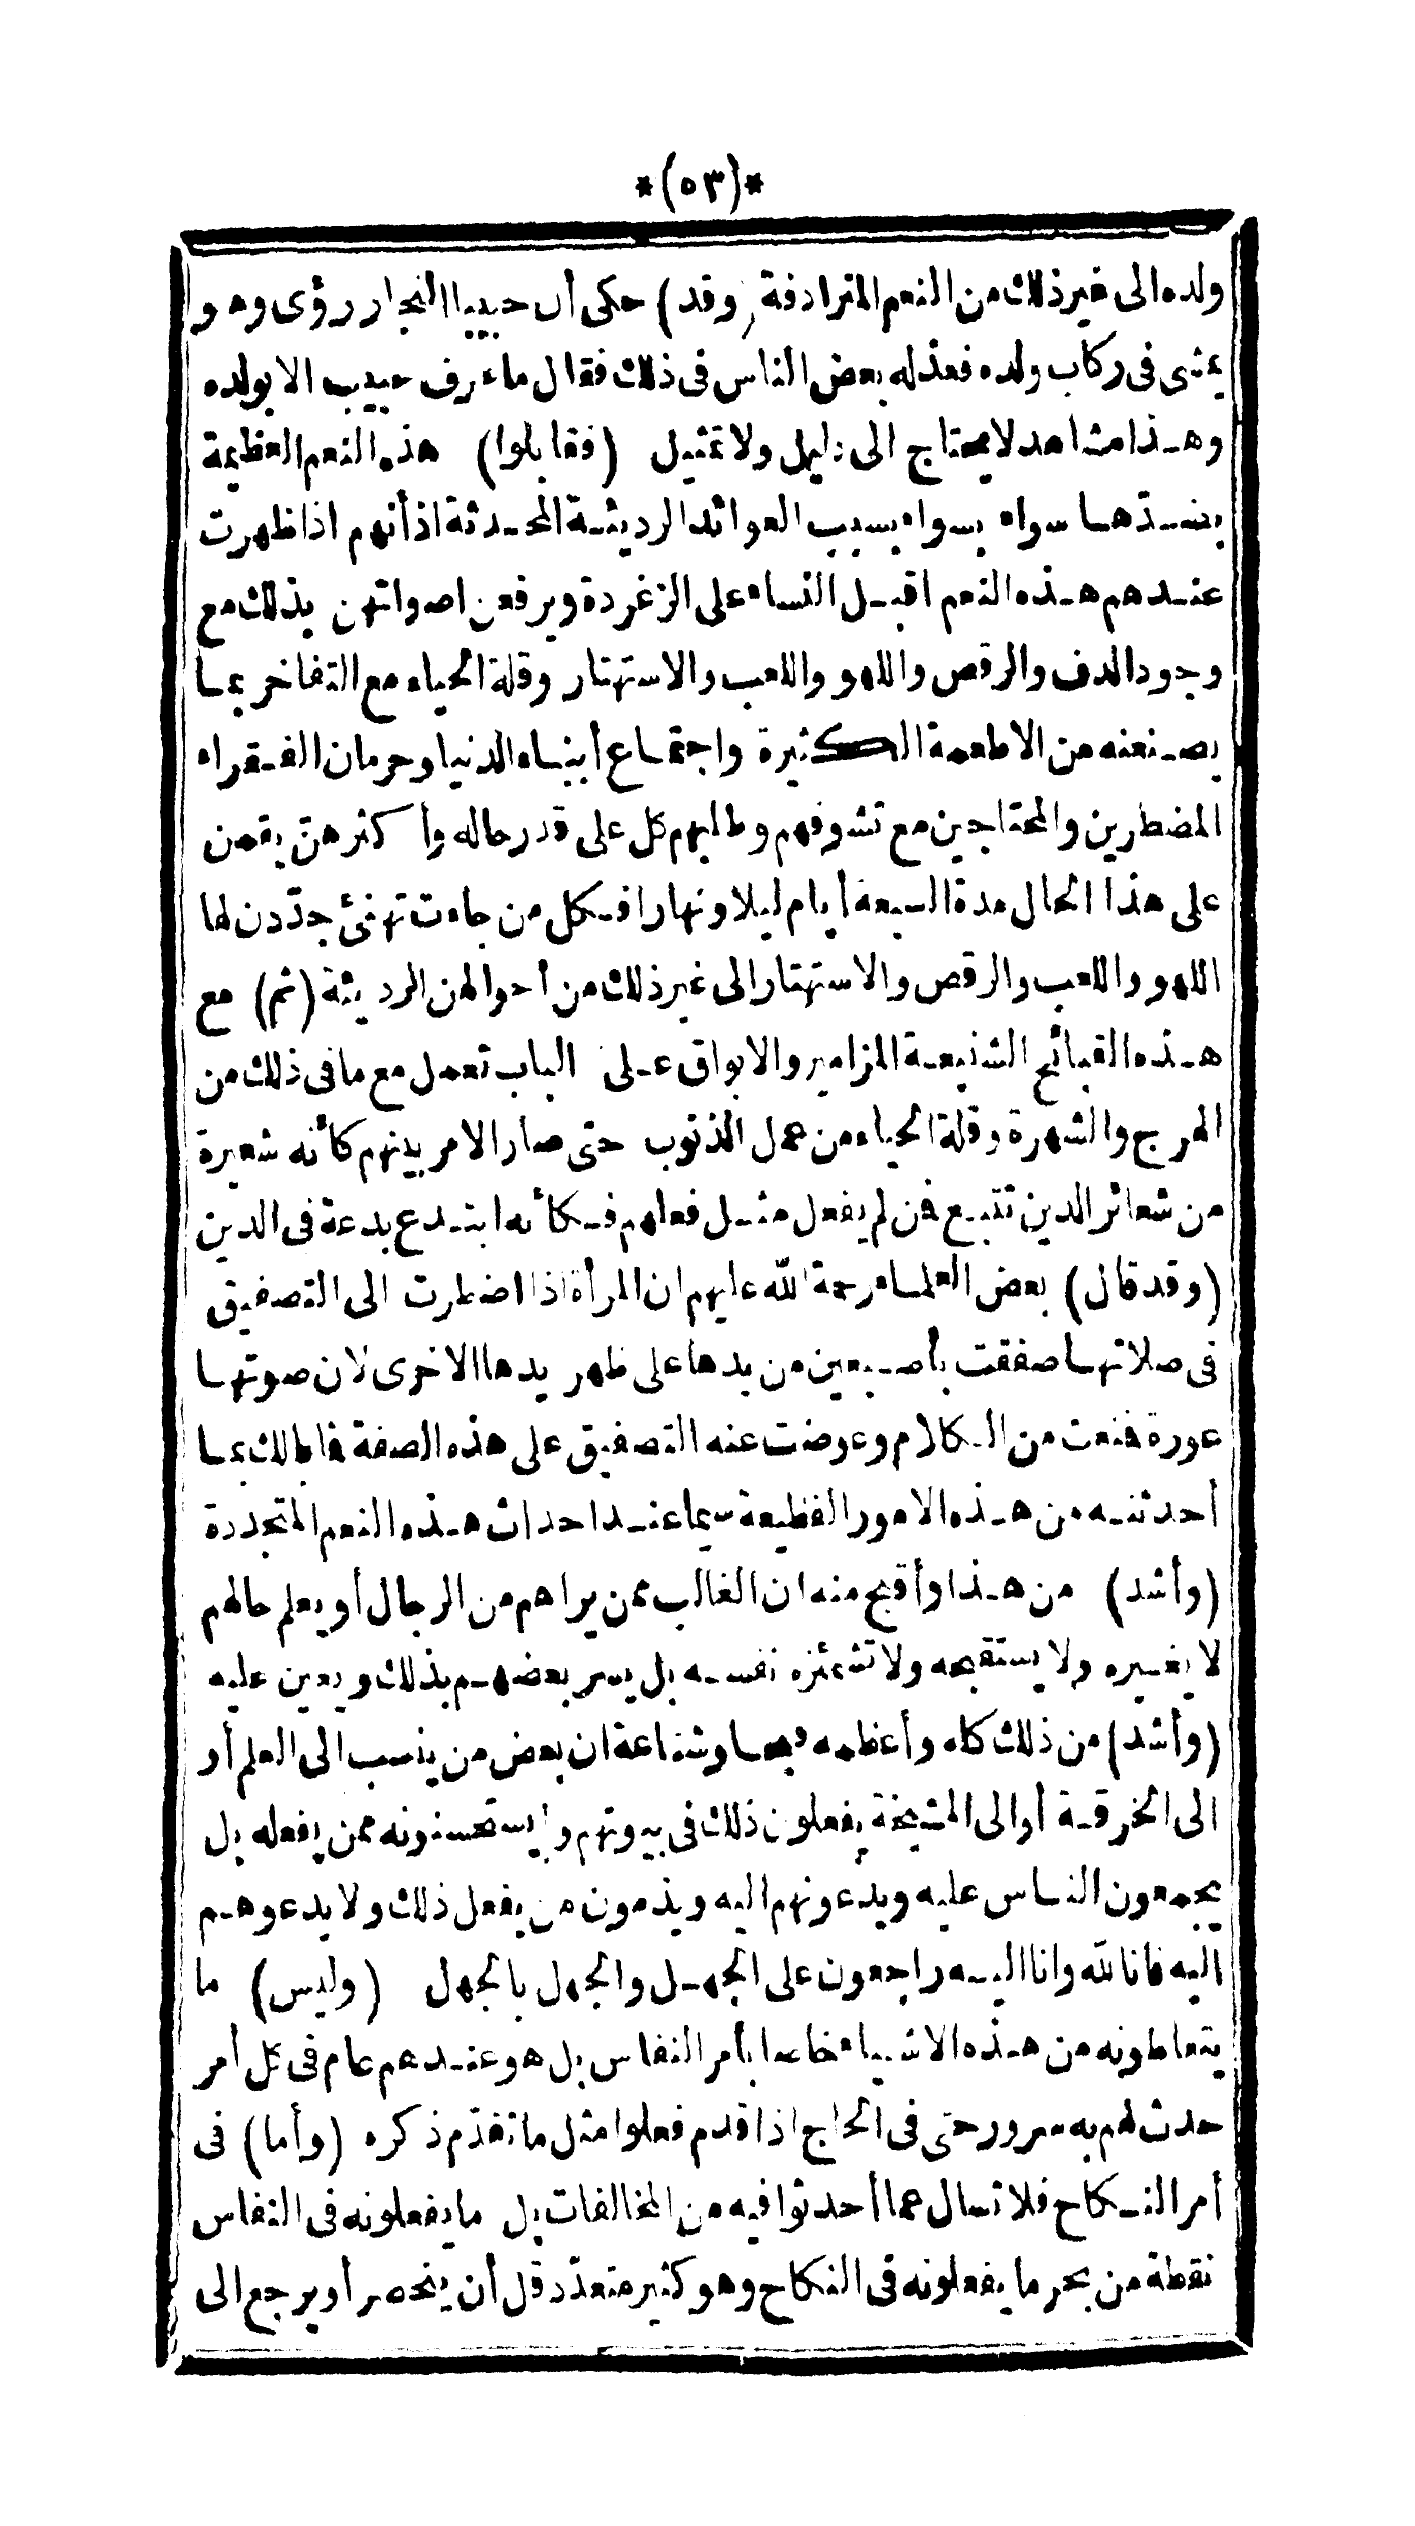 *(٥٣)*
ولده الى غير ذلك من النعم المترادفة (وقد) حكى أن حبيبا النجار رؤى وهو
يمشى فى ركاب ولده فعذله بعض الناس فى ذلك فقال ما عرف حبيب الا بولده
وهذا مشاهد لا يحتاج الى دليل ولا تمثيل (فقابلوا) هذه النعم العظيمة
بضدها سواء بسواء بسبب العوائد الرديئة المحدثة اذ أنهم اذا ظهرت
عندهم هذه النعم اقبل النساء على الزغردة ويرفعن اصواتهن بذلك مع
وجود الدف والرقص واللهو واللعب والاستهتار وقلة الحياء مع التفاخر بما
يصنعنه من الاطعمة الكثيرة واجتماع أبناء الدنيا وحرمان الفقراء
المضطرين والمحتاجين مع تشوفهم وطلبهم كل على قدر حاله وأكثرهن يقمن
على هذا الحال مدة السبعة أيام ليلا ونهارا فكل من جاءت تهنئ جدّدن لها
اللهو واللعب والرقص والاستهتار الى غير ذلك من أحوالهن الرديئة (ثم) مع
هذه القبائح الشنيعة المزامير والابواق على الباب تعمل مع ما فى ذلك من
الهرج والشهرة وقلة الحياء من عمل الذنوب حتى صار الامر بينهم كأنه شعيرة
من شعائر الدين تتبع فمن لم يفعل مثل فعلهم فكأنه ابتدع بدعة فى الدين
(وقد قال) بعض العلماء رحمة الله عليهم ان المرأة اذا اضطرت الى التصفيق
فى صلاتها صفقت بأصبعين من يدها على ظهر يدها الاخرى لان صوتها
عورة فمنعت من الكلام وعوضت عنه التصفيق على هذه الصفة فما بالك بما
أحدثنه من هذه الامور الفظيعة سيما عند احداث هذه النعم المتجددة
(وأشد) من هذا وأقبح منه ان الغالب ممن يراهم من الرجال أو يعلم حالهم
لا يغيره ولا يستقبحه ولا تشمئزه نفسه بل يسر بعضهم بذلك ويعين عليه
(وأشد) من ذلك كله وأعظمه قبحا وشناعة ان بعض من ينسب الى العلم أو
الى الخرقة أو الى المشيخة يفعلون ذلك فى بيوتهم ويستحسنونه ممن يفعله بل
يجمعون الناس عليه ويدعونهم اليه ويذمون من يفعل ذلك ولا يدعوهم
اليه فانا لله وانا اليه راجعون على الجهل والجهل بالجهل (وليس) ما
يتعاطونه من هذه الاشياء خاصا بأمر النفاس بل هو عندهم عام فى كل أمر
حدث لهم به سرور حتى فى الحاج اذا قدم فعلوا مثل ما تقدّم ذكره (وأما) فى
أمر النكاح فلا تسال عما أحدثوا فيه من المخالفات بل ما يفعلونه فى النفاس
نقطة من بحر ما يفعلونه فى النكاح وهو كثير متعدّد قل أن ينحصر أو يرجع الى